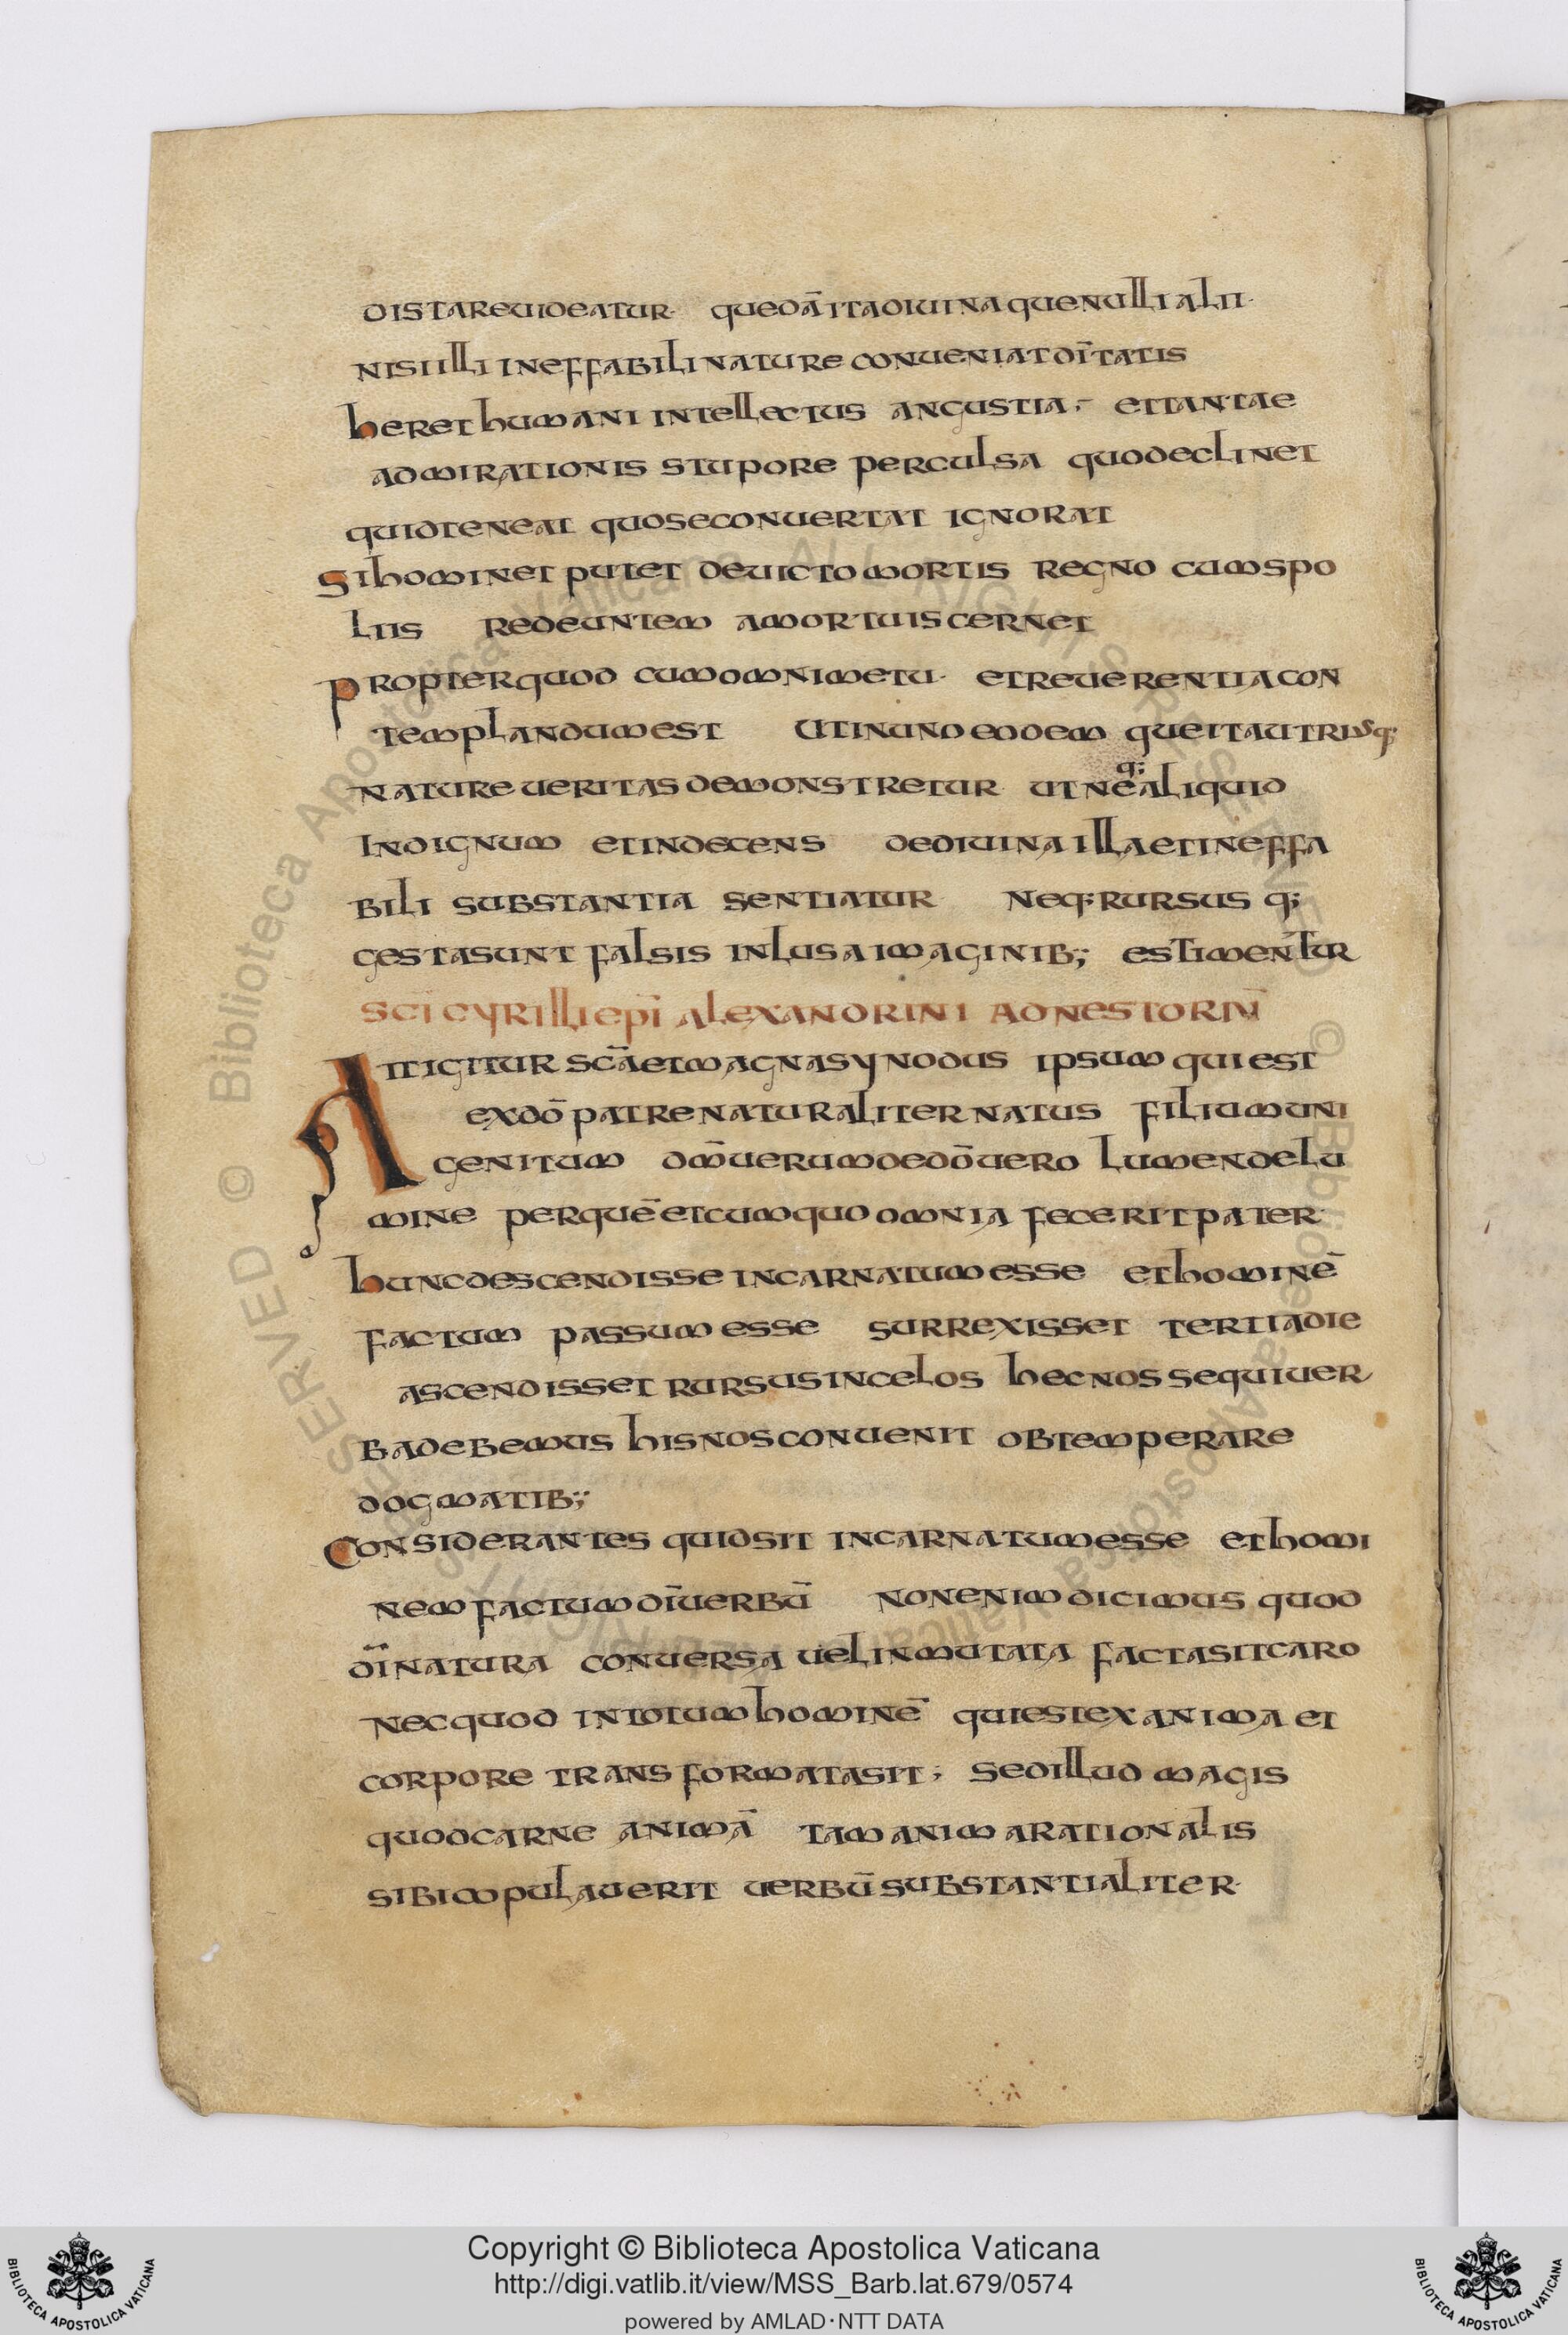 distare uideatur · quedā ita diuina que nulli alii ·
nisi illi ineffabili nature conueniat dītatis
heret humani intellectus angustia ,- et tantae
admirationis stupore perculsa quo declinet
quid teneat quo se conuertat ignorat
Si hominet putet deuicto mortis regno cum spo
liis redeuntem a mortuis cernet
Propter quod cum omni metu · et reuerentia con
templandum est Ut in uno eodem que ita utriusq;
nature ueritas demonstretur ut neq; aliquid
indignum et indecens de diuina illa et ineffa
bili substantia sentiatur Neq; rursus q;
gesta sunt falsis inlusa imaginib; estimentur
SCĪ CYRILLI EPĪ ALEXANDRINI AD NESTORIŪ
Ait igitur scā et magna synodus ipsum qui est
ex dō patre naturaliter natus filium uni
genitum dm̄ uerum de dō uero lumen de lu
mine per quē et cum quo omnia fecerit pater ·
hunc descendisse incarnatum esse et hominē
factum passum esse surrexisset tertia die
ascendisset rursus in celos hec nos sequi uer
ba debemus his nos conuenit obtemperare
dogmatib;
Considerantes quid sit incarnatum esse et homi
nem factum dī uerbū Non enim dicimus quod
dī natura conuersa uel inmutata facta sit caro
nec quod in totum hominē qui est ex anima et
corpore transformata sit ; sed illud magis
quod carne animā tam anima rationalis
sibimpulauerit uerbū substantialiter ·
Copyright © Biblioteca Apostolica Vaticana
http://digi.vatlib.it/view/MSS_Barb.lat.679/0574
powered by AMLAD·NTT DATA
BIBLIOTECA APOSTOLICA VATICANA
BIBLIOTECA APOSTOLICA VATICANA